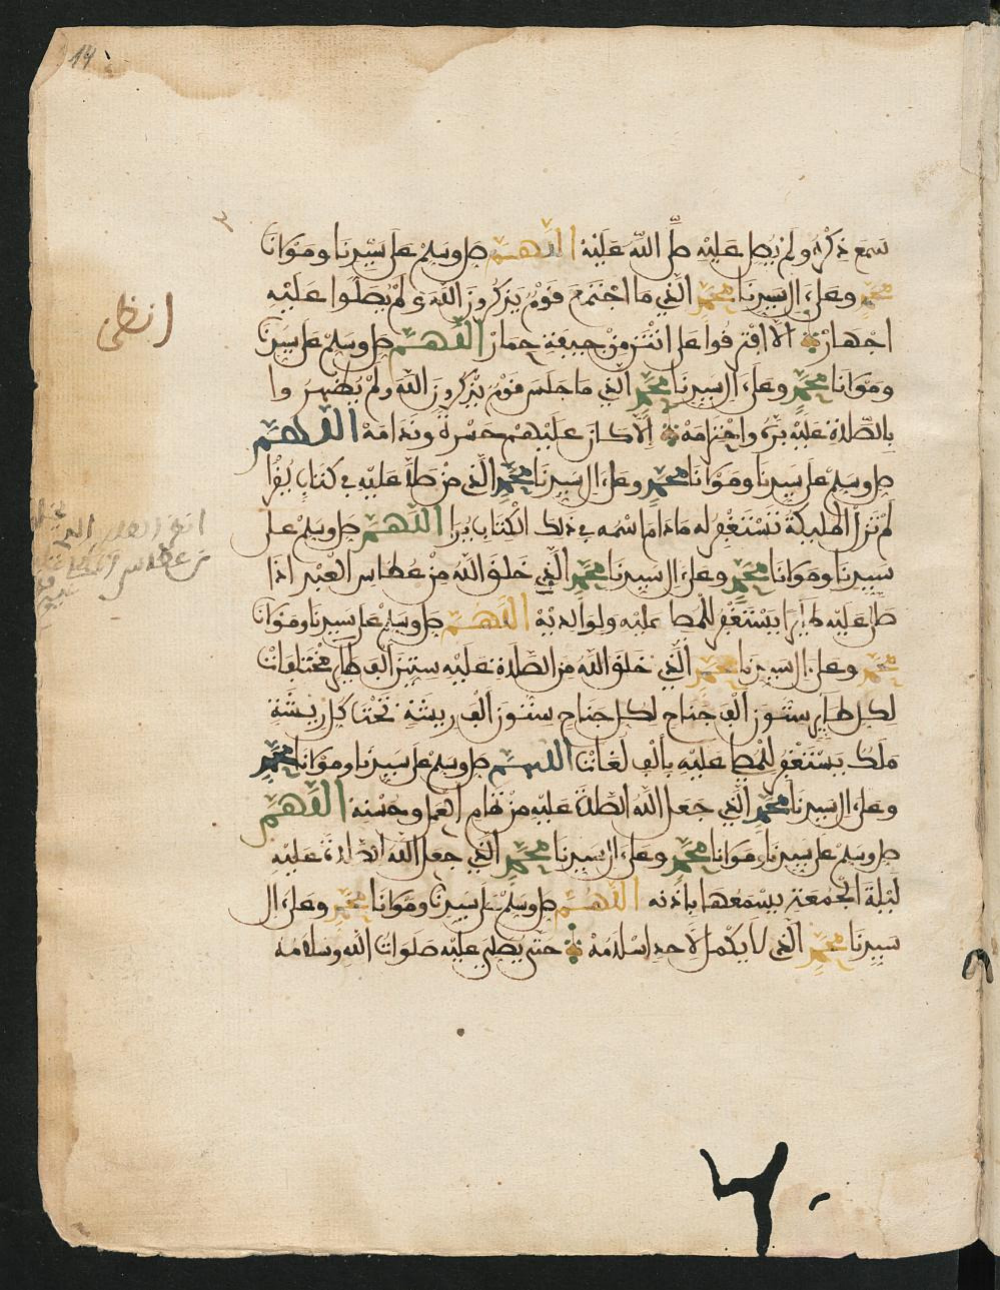 14
سمع ذكره ولم يصل عليه صلى الله عليه اللهم صل وسلم على سيدنا ومولانا
محمد وعلى ءال سيدنا محمد الذي ما اجتمع قوم يذكرون الله ولم يصلوا عليه
اجهارة الا افترقوا على انتن من جيفة حمار اللهم صل وسلم على سيدنا
ومولانا محمد وعلى ءال سيدنا محمد الذي ما جلس قوم يذكرون الله ولم يظهروا
بالصلاة عليه بره واحترامه الا كان عليهم حسرة وندامة اللهم
صل وسلم على سيدنا ومولانا محمد وعلى ءال سيدنا محمد الذي من صلا عليه في كتاب يقرا
لم تزل الملئكة تستغفر له مادام اسمه في ذلك الكتاب يرا اللهم صل وسلم على
سيدنا ومولانا محمد وعلى ءال سيدنا محمد الذي خلق الله من عطاس العبد اذا
صلى عليه طايرا يستغفر للمصلى عليه ولوالديه اللهم صل وسلم على سيدنا ومولانا
محمد وعلى ءال سيدنا محمد الذي خلق الله من الصلاة عليه ستين الف طاير مختلفات
لكل طاير ستون الف جناح لكل جناح ستون الف ريشة تحت كل ريشة
ملك يستغفر للمصلى عليه بالف لغات اللهم صل وسلم على سيدنا ومولانا محمد
وعلى ءال سيدنا محمد الذي جعل الله الصلاة عليه من تمام العمل وحسنه اللهم
صل وسلم على سيدنا ومولانا محمد وعلى ءال سيدنا محمد الذي جعل الله الصلاة عليه
ليلة الجمعة يسمعها باذنه اللهم صل وسلم على سيدنا ومولانا محمد وعلى ءال
سيدنا محمد الذي لا يكمل لاحد اسلامه حتى يصلي عليه صلوات الله وسلامه
انظر